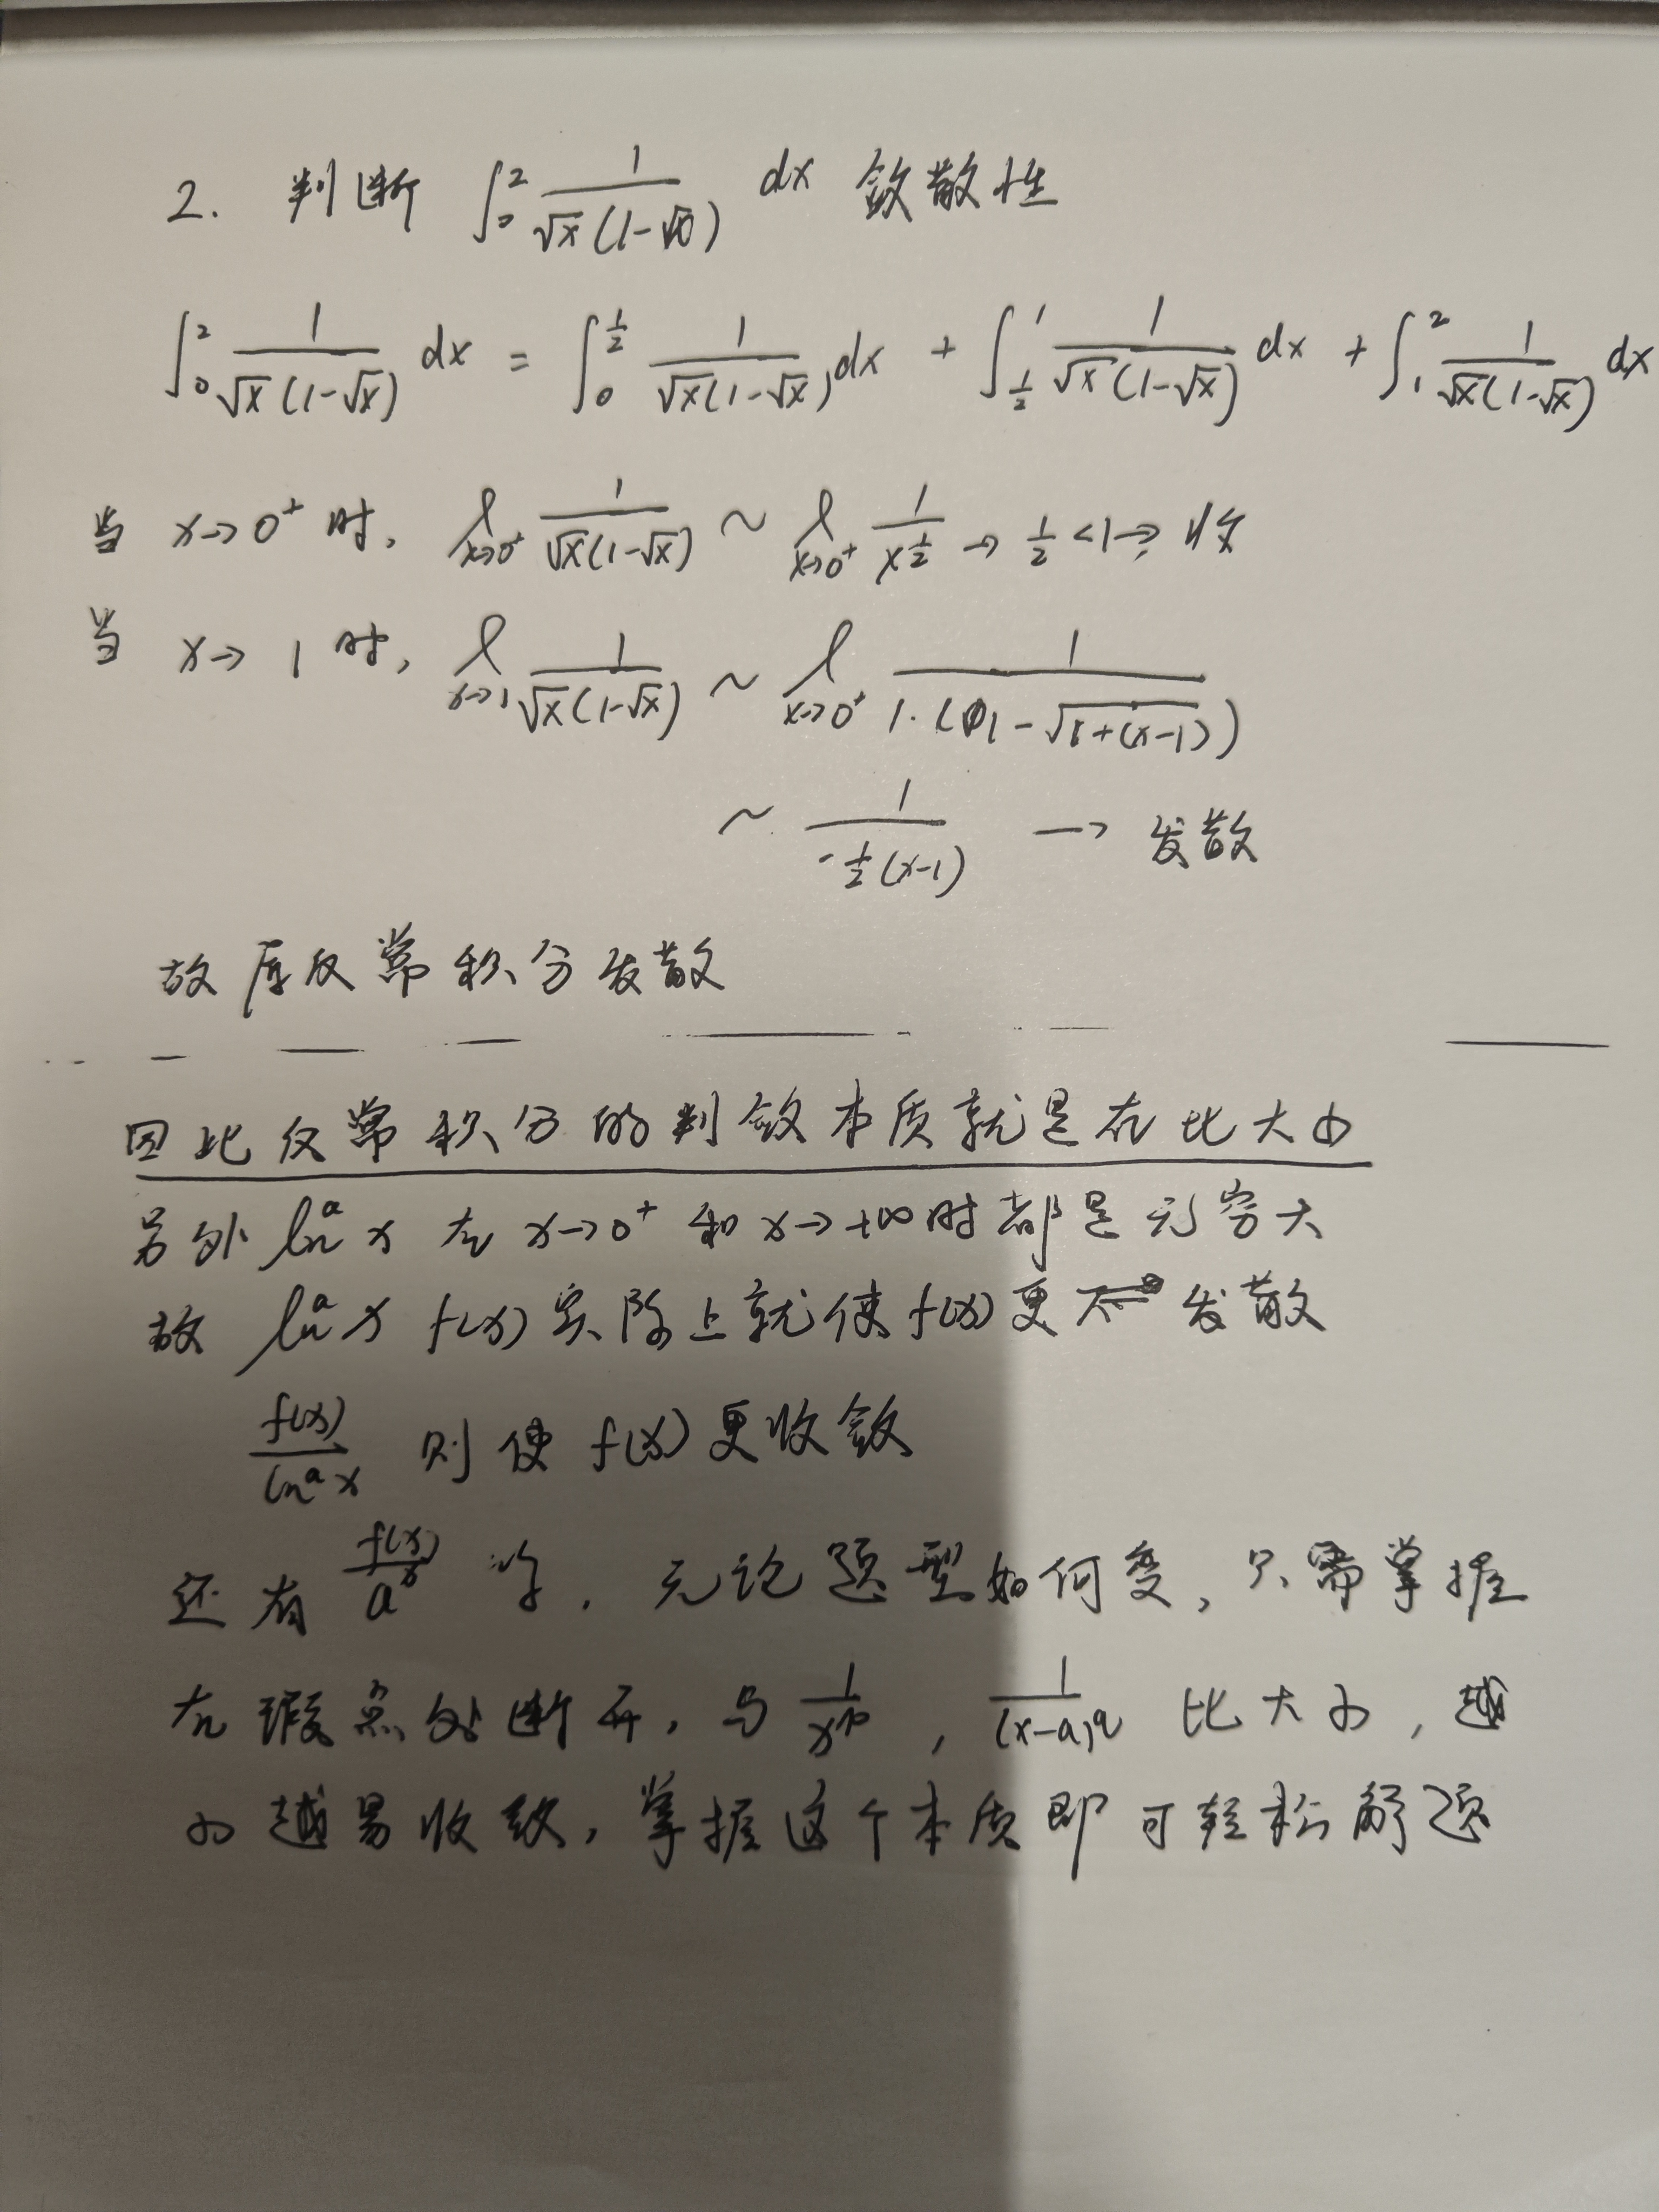 2. 判断 ∫₀² 1/(√x(1-√x)) dx 敛散性
∫₀² 1/(√x(1-√x)) dx = ∫₀^(1/2) 1/(√x(1-√x)) dx + ∫_(1/2)^1 1/(√x(1-√x)) dx + ∫₁² 1/(√x(1-√x)) dx
当 x→0⁺ 时, l_(x→0⁺) 1/(√x(1-√x)) ~ l_(x→0⁺) 1/x^(1/2) → 1/2 <1 → 收
当 x→1 时, l_(x→1) 1/(√x(1-√x)) ~ l_(x→0⁺) 1/(1·(1-√(1+(x-1))))
~ 1/(-1/2(x-1)) → 发散
故原反常积分发散
因此反常积分的判敛本质就是在比大小
另外 lnᵃx 在 x→0⁺ 和 x→+∞时都是无穷大
故 lnᵃx f(x) 实际上就使 f(x) 更 发散
f(x)/lnᵃx 则使 f(x) 更收敛
还有 f(x)/aˣ 等. 无论题型如何变, 只需掌握
在瑕点处断开, 与 1/xᵖ , 1/(x-a)^q 比大小, 越
小越易收敛, 掌握这个本质即可轻松解题